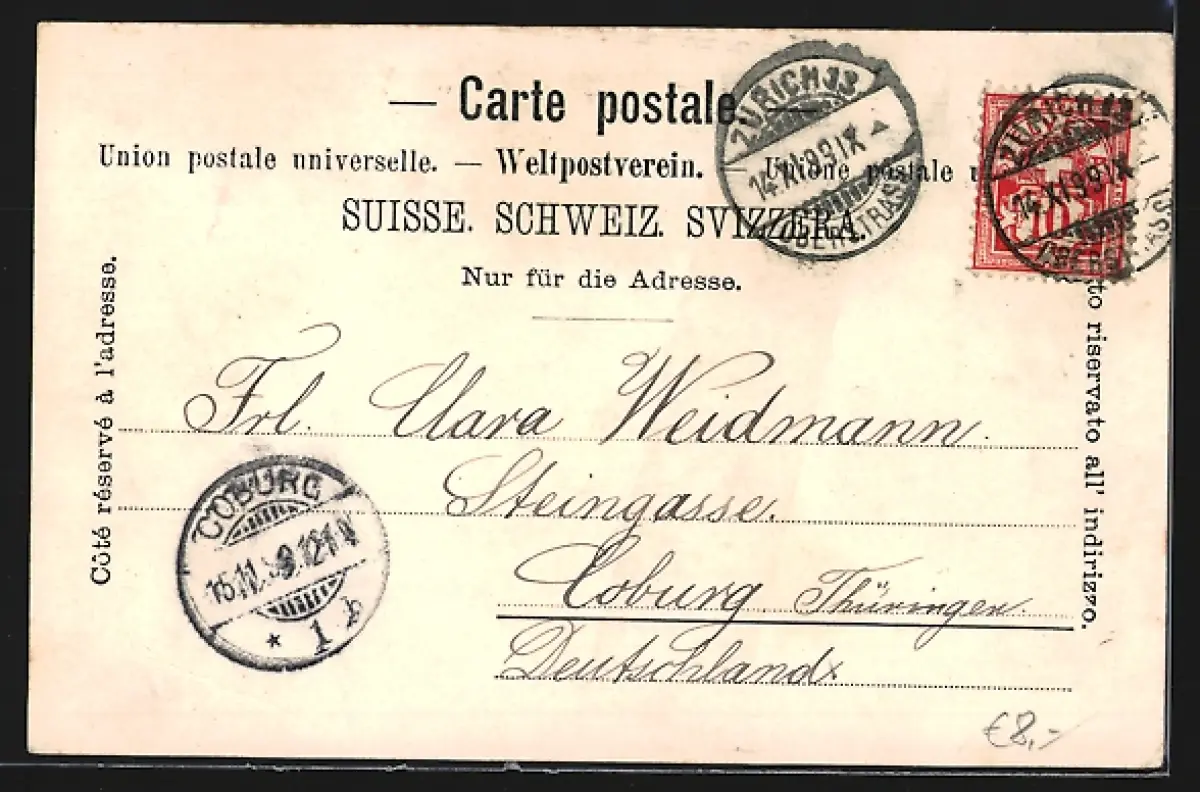 — Carte postale. —
Union postale universelle. — Weltpostverein. — Unione postale
SUISSE. SCHWEIZ. SVIZZERA.
Nur für die Adresse.
Côté réservé à l'adresse.
riservato all' indirizzo.
ZÜRICH
14.XI.99.IX
OBERSTRASS
ZÜRICH
14.XI.99.IX
10
Frl. Clara Weidmann.
Steingasse.
Coburg Thüringen.
Deutschland
COBURG
15.11.
* 1
€8,-